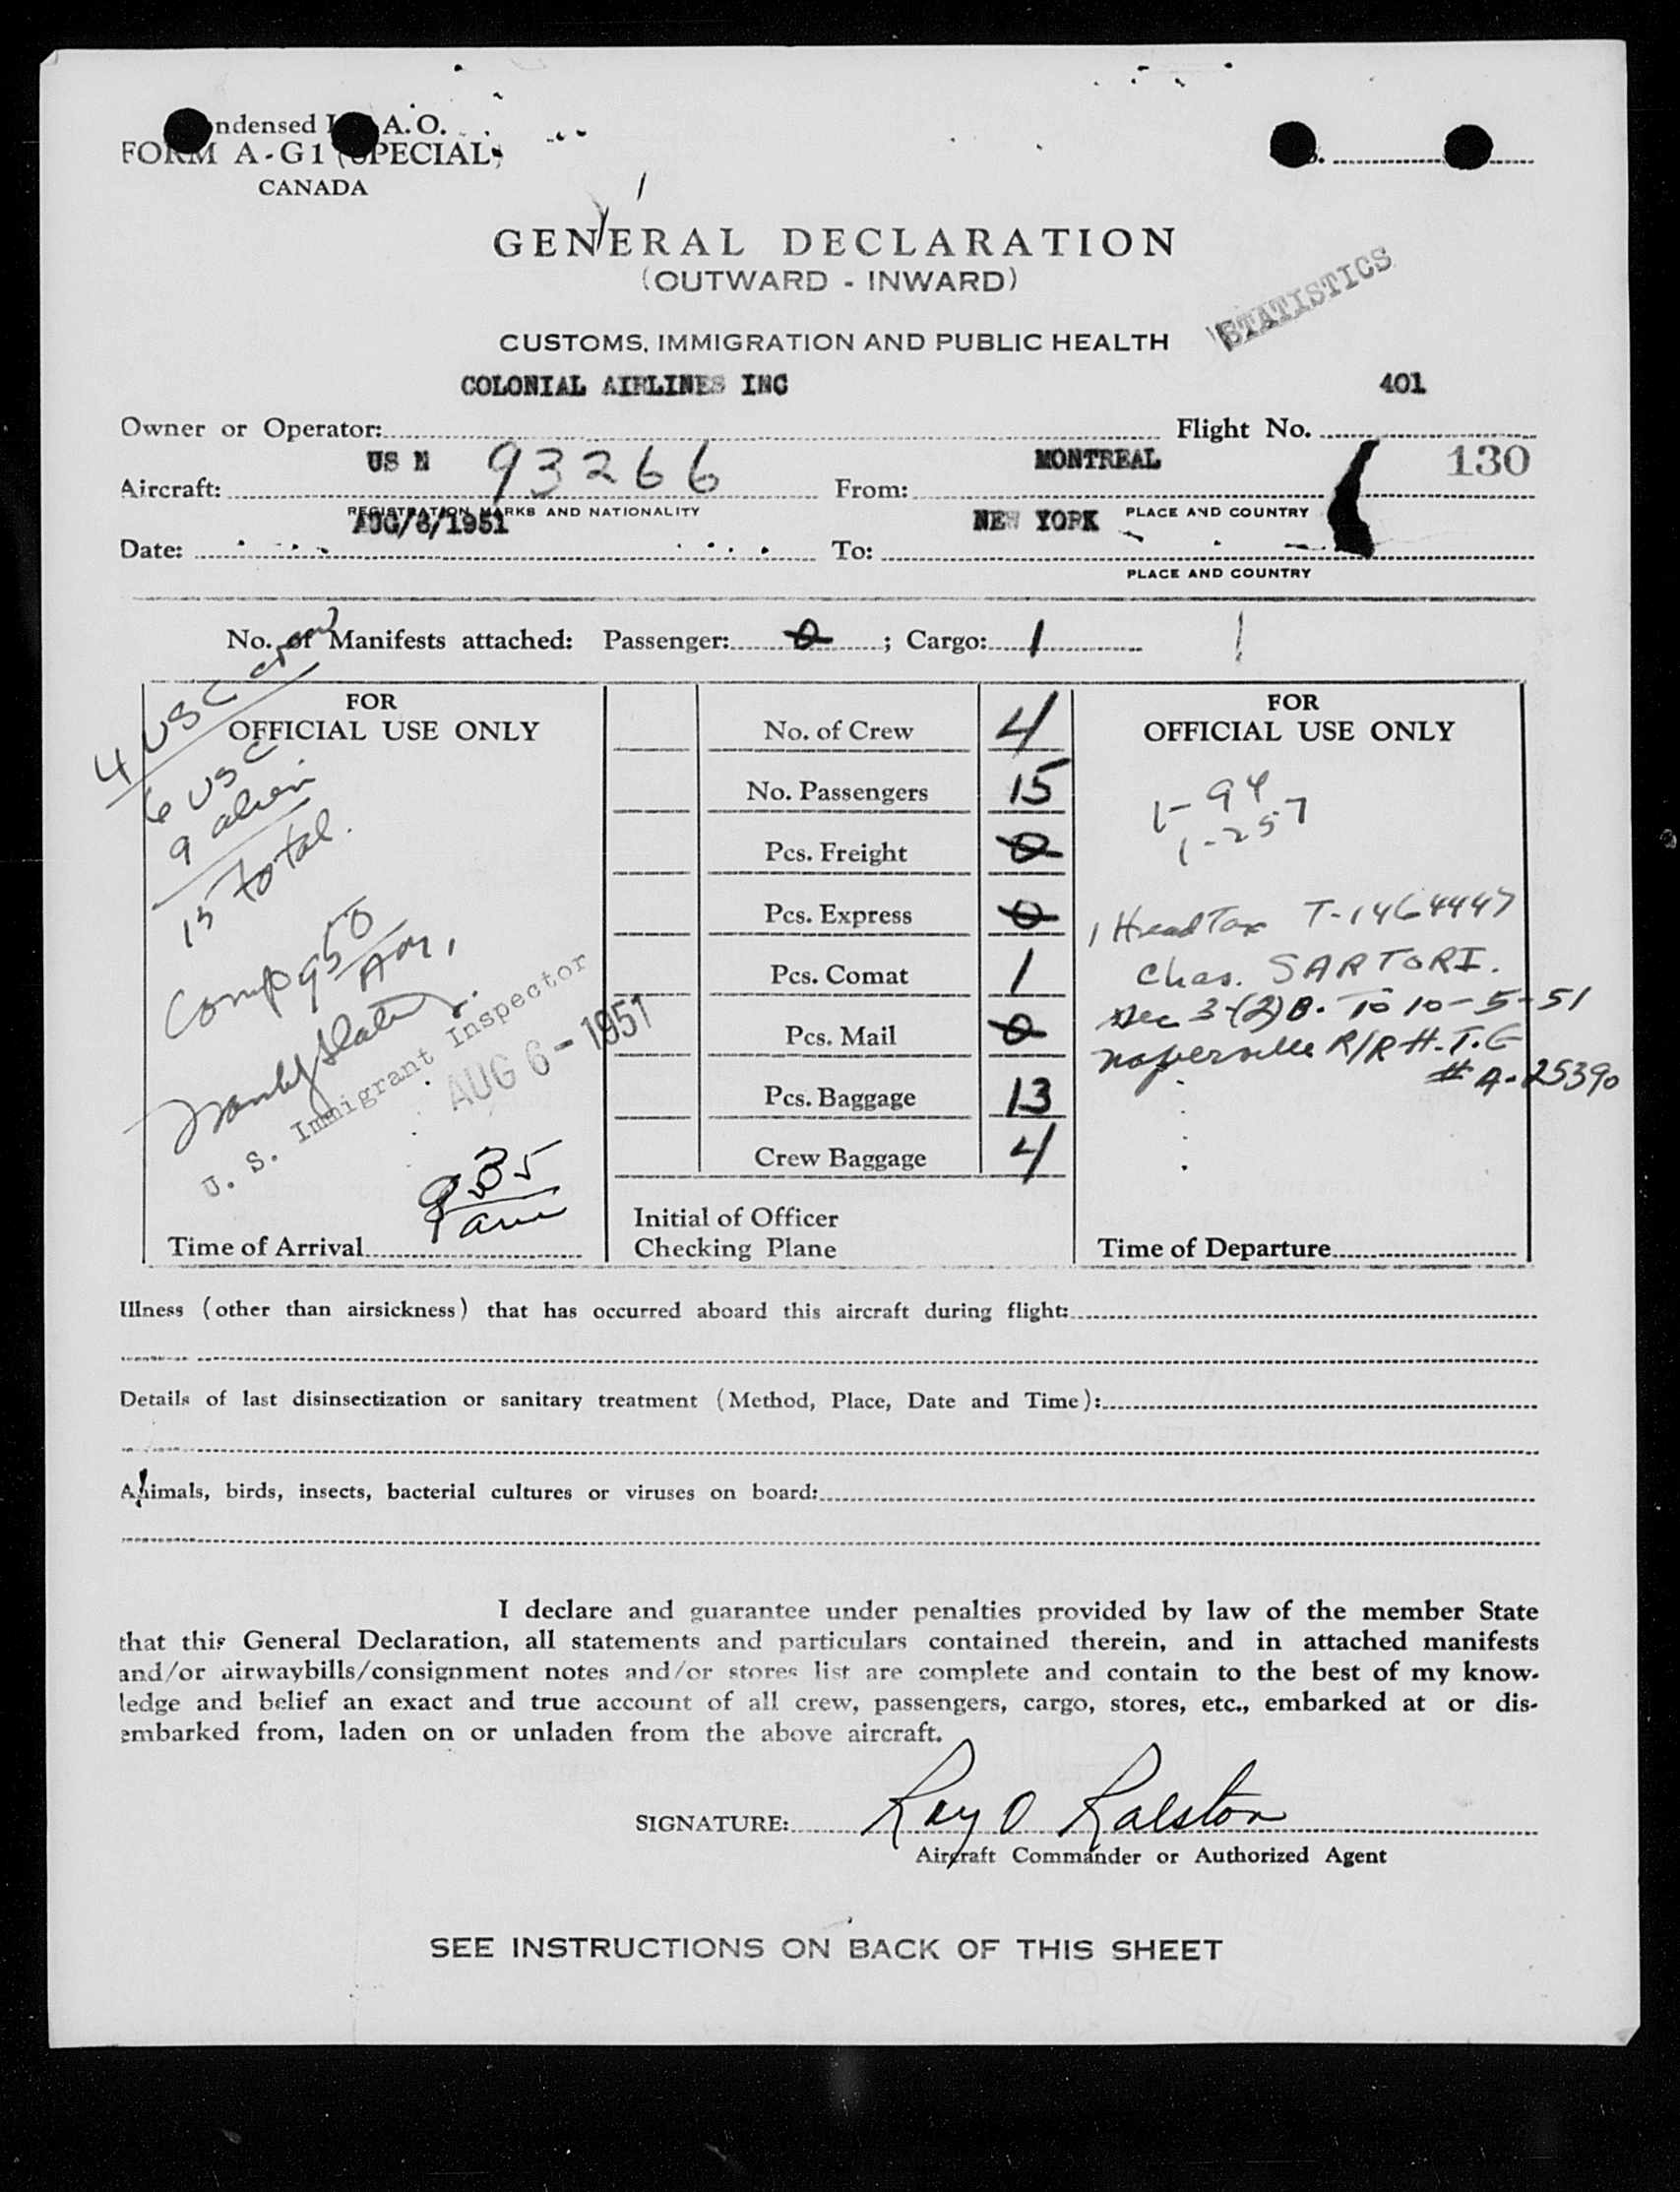 ndensed I A. O.
FORM A-G1 (SPECIAL)
CANADA
GENERAL DECLARATION
(OUTWARD - INWARD)
STATISTICS
CUSTOMS, IMMIGRATION AND PUBLIC HEALTH
COLONIAL AIRLINES INC 401
Owner or Operator: Flight No.
US N 93266 MONTREAL 130
Aircraft: From:
REGISTRATION MARKS AND NATIONALITY PLACE AND COUNTRY
AUG/6/1951 NEW YORK
Date: To:
PLACE AND COUNTRY
No. of Manifests attached: Passenger: 0 ; Cargo: 1
FOR
OFFICIAL USE ONLY
4 USC crew
6 USC
9 alien
15 total.
Comp 950
Am.
U. S. Immigrant Inspector
AUG 6 - 1951
935
am
Time of Arrival
No. of Crew 4
No. Passengers 15
Pcs. Freight 0
Pcs. Express 0
Pcs. Comat 1
Pcs. Mail 0
Pcs. Baggage 13
Crew Baggage 4
Initial of Officer
Checking Plane
FOR
OFFICIAL USE ONLY
1-94
1-257
1 Head Tax T-1464447
Chas. SARTORI.
Sec 3-(2)B. To 10-5-51
Naperville R/R H.T.G
# A-25390
Time of Departure
Illness (other than airsickness) that has occurred aboard this aircraft during flight:
Details of last disinsectization or sanitary treatment (Method, Place, Date and Time):
Animals, birds, insects, bacterial cultures or viruses on board:
I declare and guarantee under penalties provided by law of the member State
that this General Declaration, all statements and particulars contained therein, and in attached manifests
and/or airwaybills/consignment notes and/or stores list are complete and contain to the best of my know-
ledge and belief an exact and true account of all crew, passengers, cargo, stores, etc., embarked at or dis-
embarked from, laden on or unladen from the above aircraft.
SIGNATURE: Ray O Ralston
Aircraft Commander or Authorized Agent
SEE INSTRUCTIONS ON BACK OF THIS SHEET